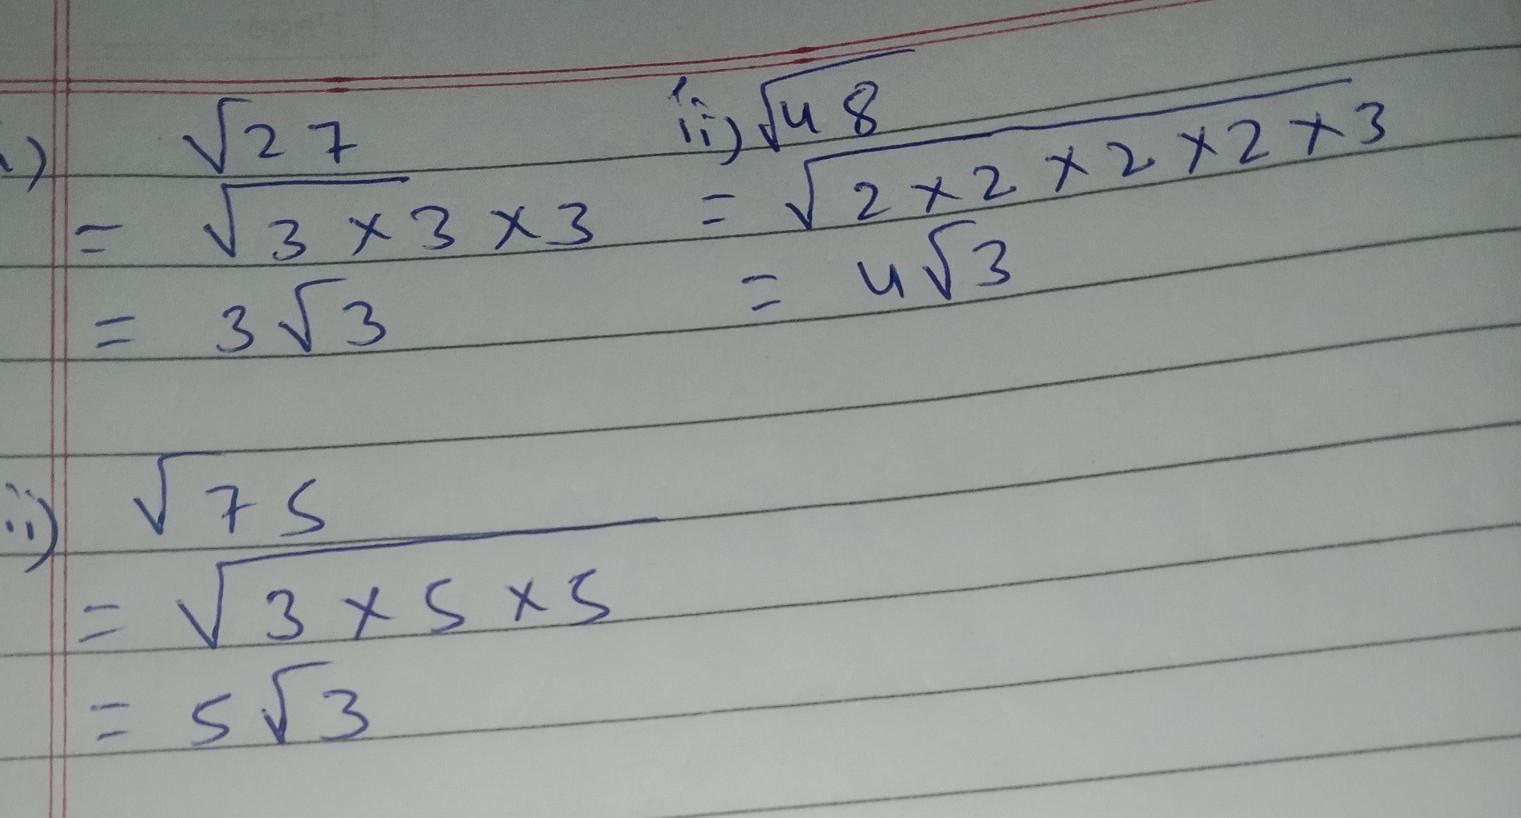 i) √27
= √3 × 3 × 3
= 3√3
ii) √48
= √2 × 2 × 2 × 2 × 3
= 4√3
ii) √75
= √3 × 5 × 5
= 5√3